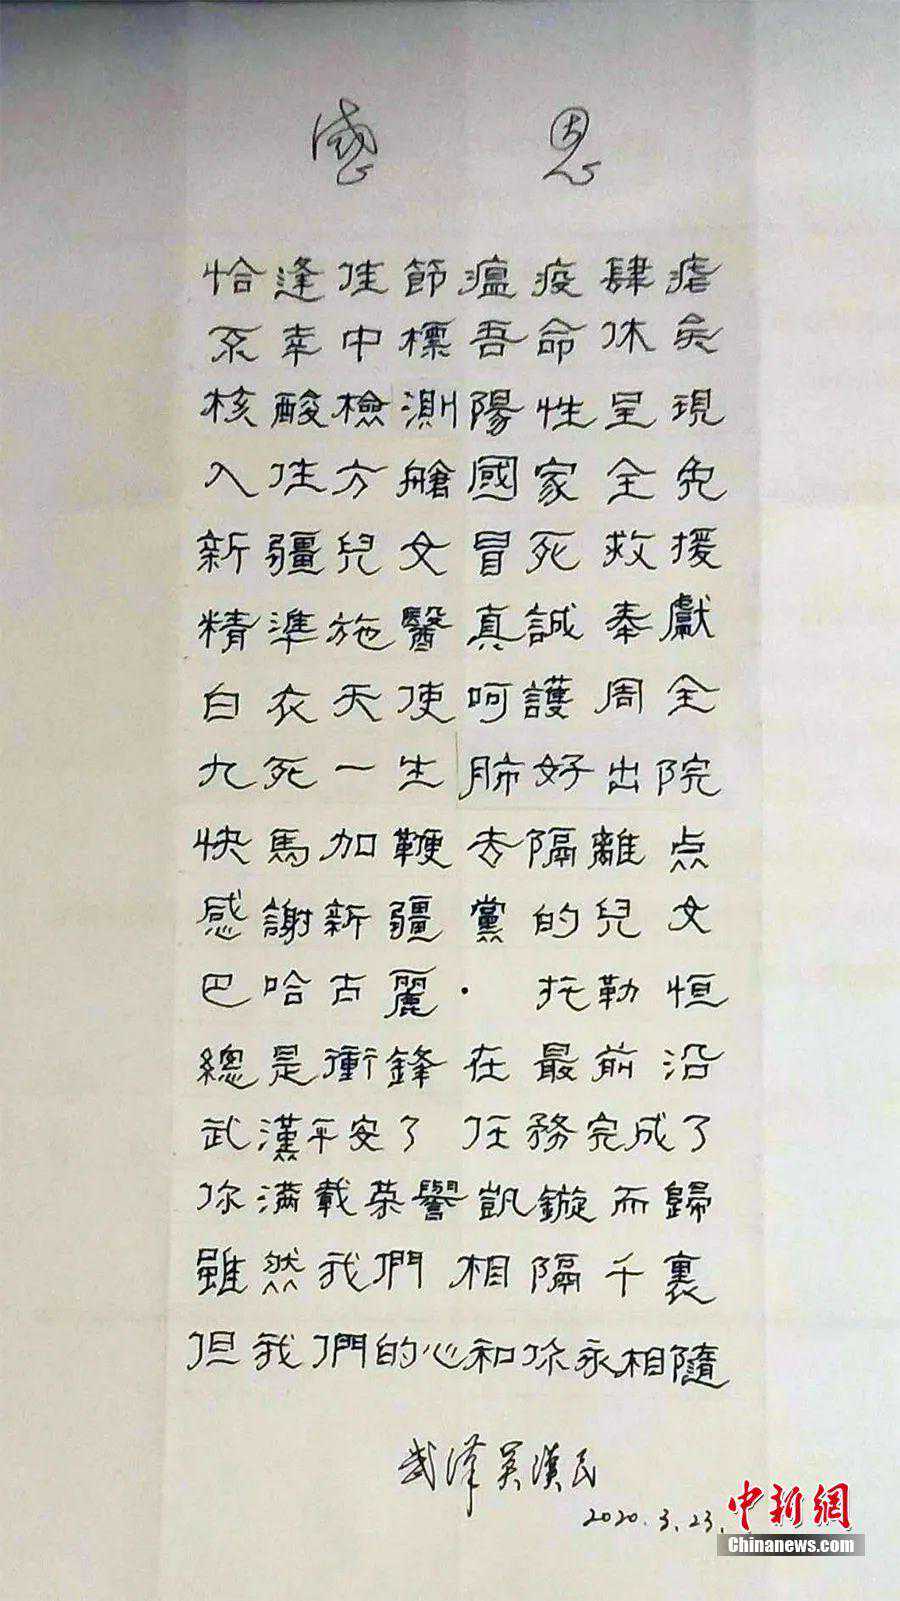 感 恩
恰逢佳節瘟疫肆虐
不幸中標吾命休矣
核酸檢測陽性呈現
入住方艙國家全免
新疆兒女冒死救援
精準施醫真誠奉獻
白衣天使呵護周全
九死一生肺好出院
快馬加鞭去隔離点
感謝新疆黨的兒女
巴哈古麗·托勒恒
總是衝鋒在最前沿
武漢平安了 任務完成了
你满載荣譽凱鏇而歸
雖然我們相隔千裏
但我們的心和你永相隨
武漢吴漢民
2020.3.23.
中新網
Chinanews.com